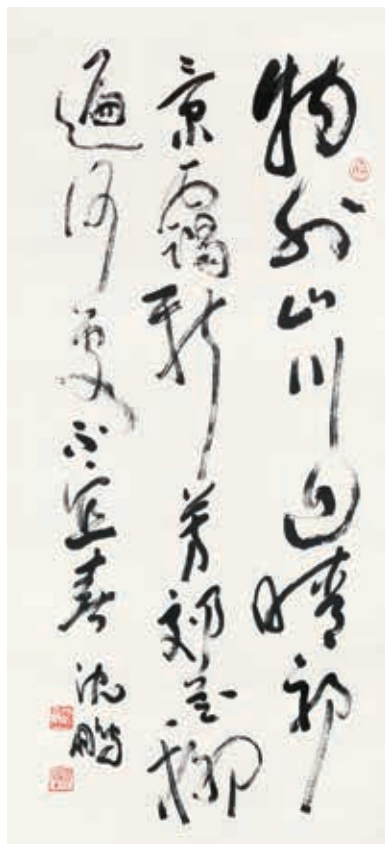 物外山川近晴初
景靄新芳郊花柳
遍何處不宜春
沈鵬